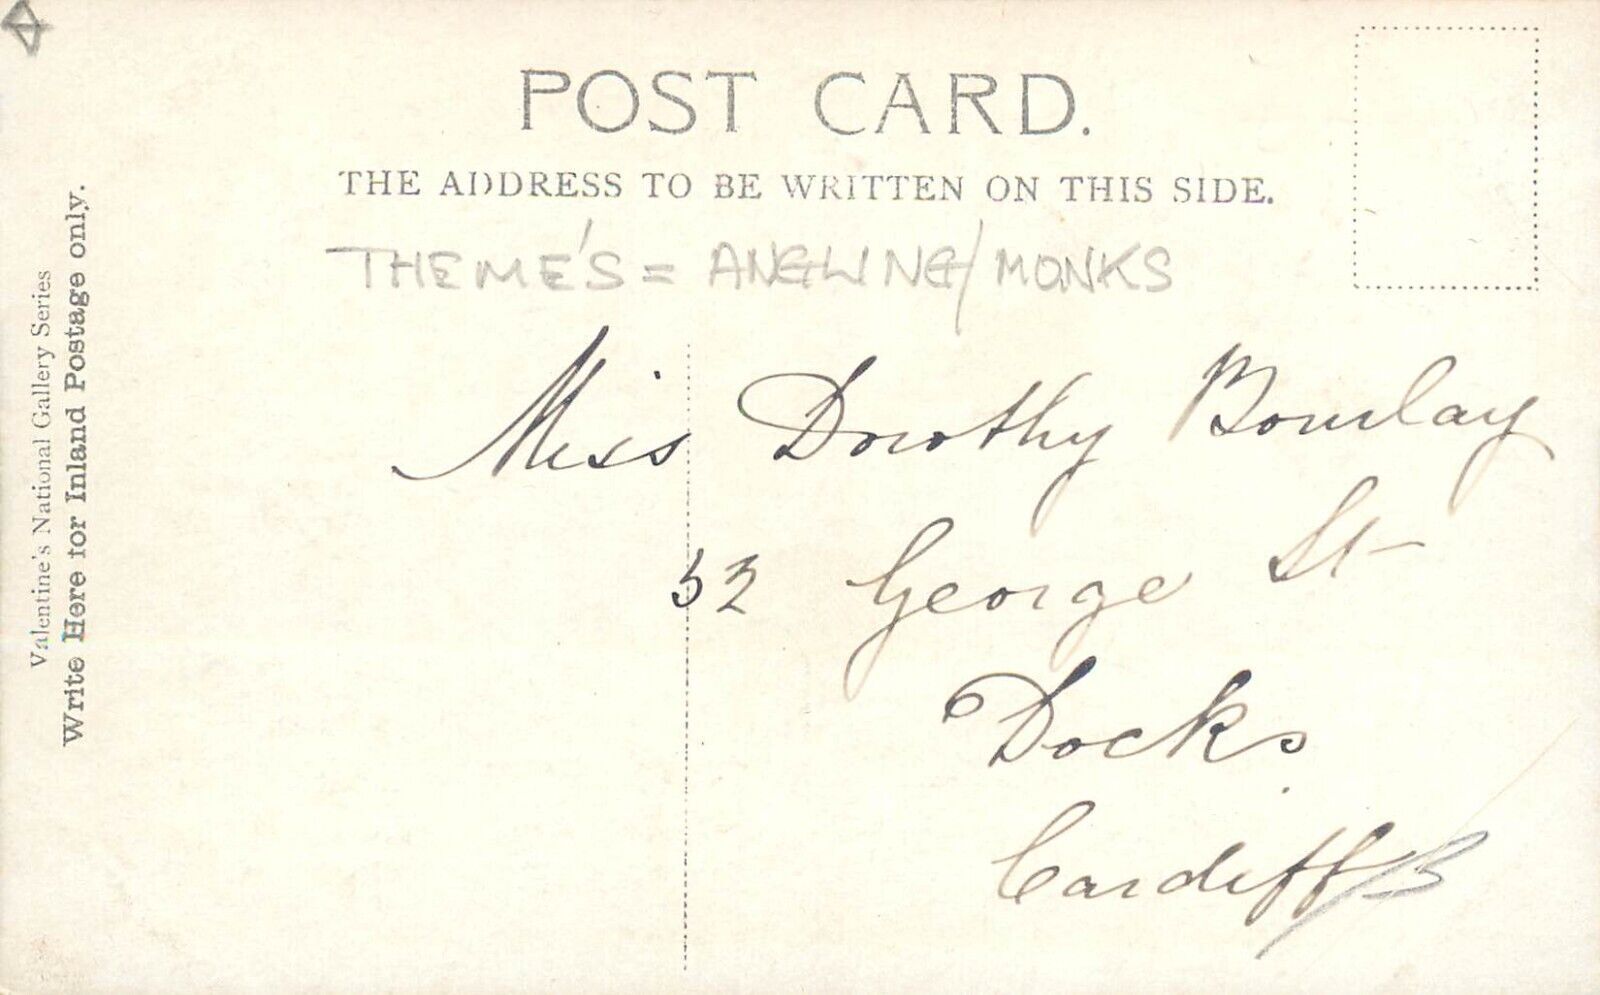 POST CARD.
THE ADDRESS TO BE WRITTEN ON THIS SIDE.
THEME'S = ANGLING/MONKS
Valentine's National Gallery Series
Write Here for Inland Postage only.
Miss Dorothy
53 George St
Docks
Cardiff